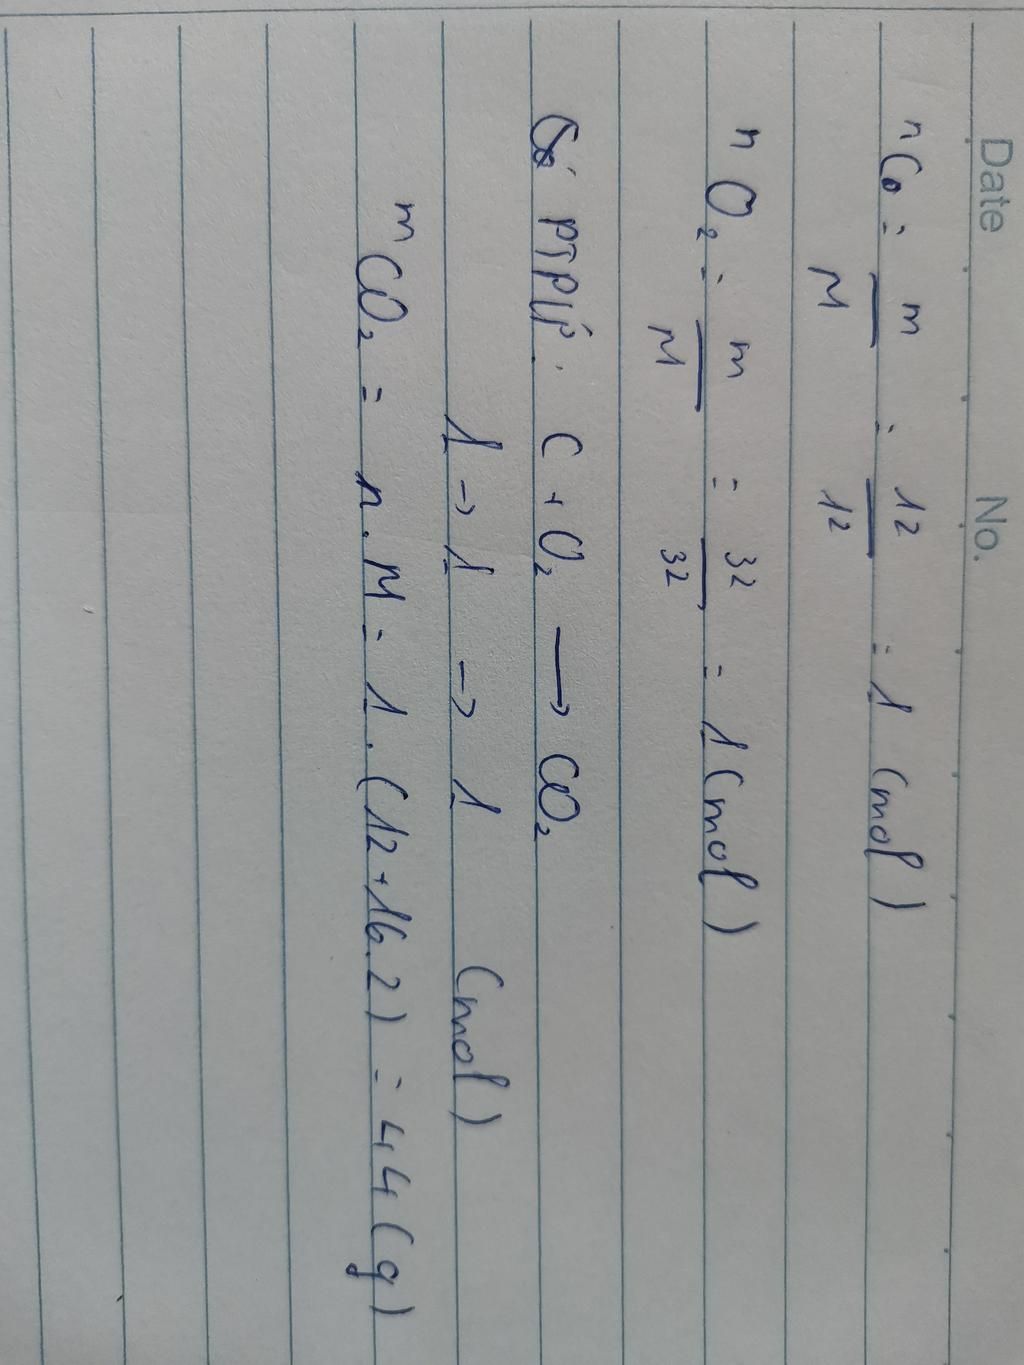 Date No.
nC = m/M = 12/12 = 1 (mol)
nO₂ = m/M = 32/32 = 1 (mol)
Có PTPƯ: C + O₂ → CO₂
1 → 1 → 1 (mol)
mCO₂ = n.M = 1.(12+16.2) = 44 (g)